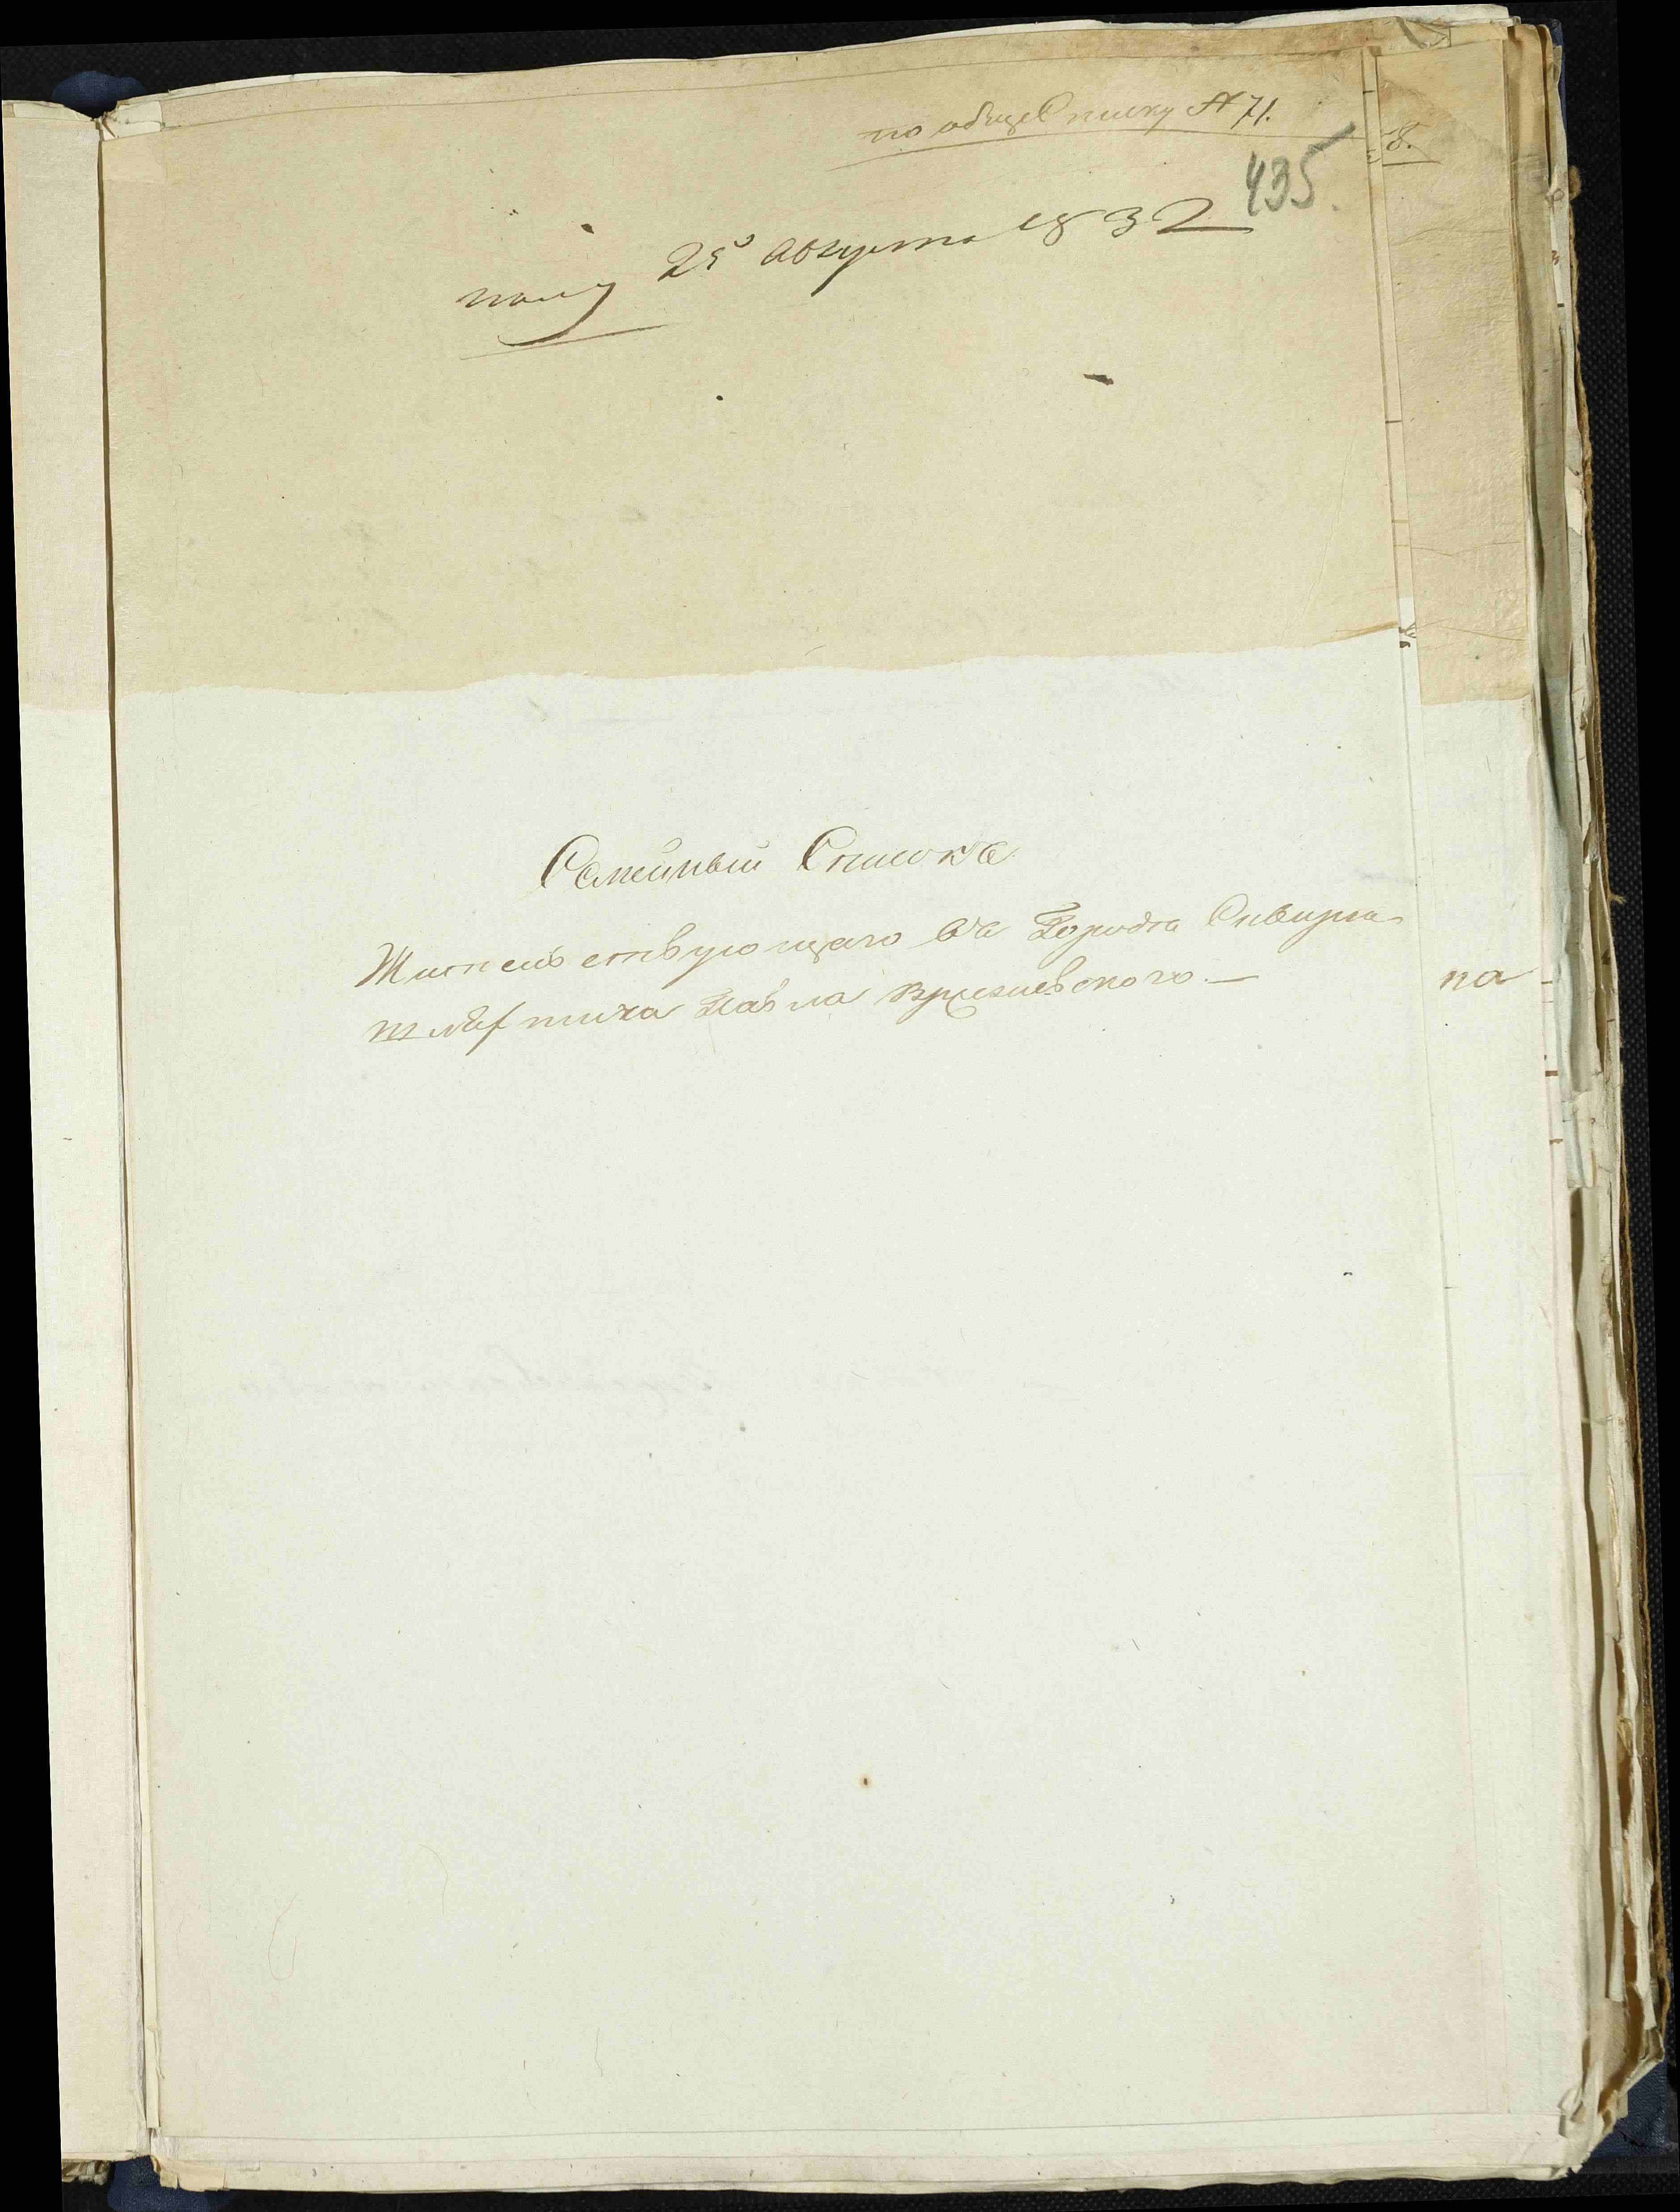 по общe Списку № 71.
8.
435.
полу 25 августа 1832
Семейный Списокъ
Жительствующаго въ Городѣ Сквирѣ
на
шляхтича Павла Вржезневского. —